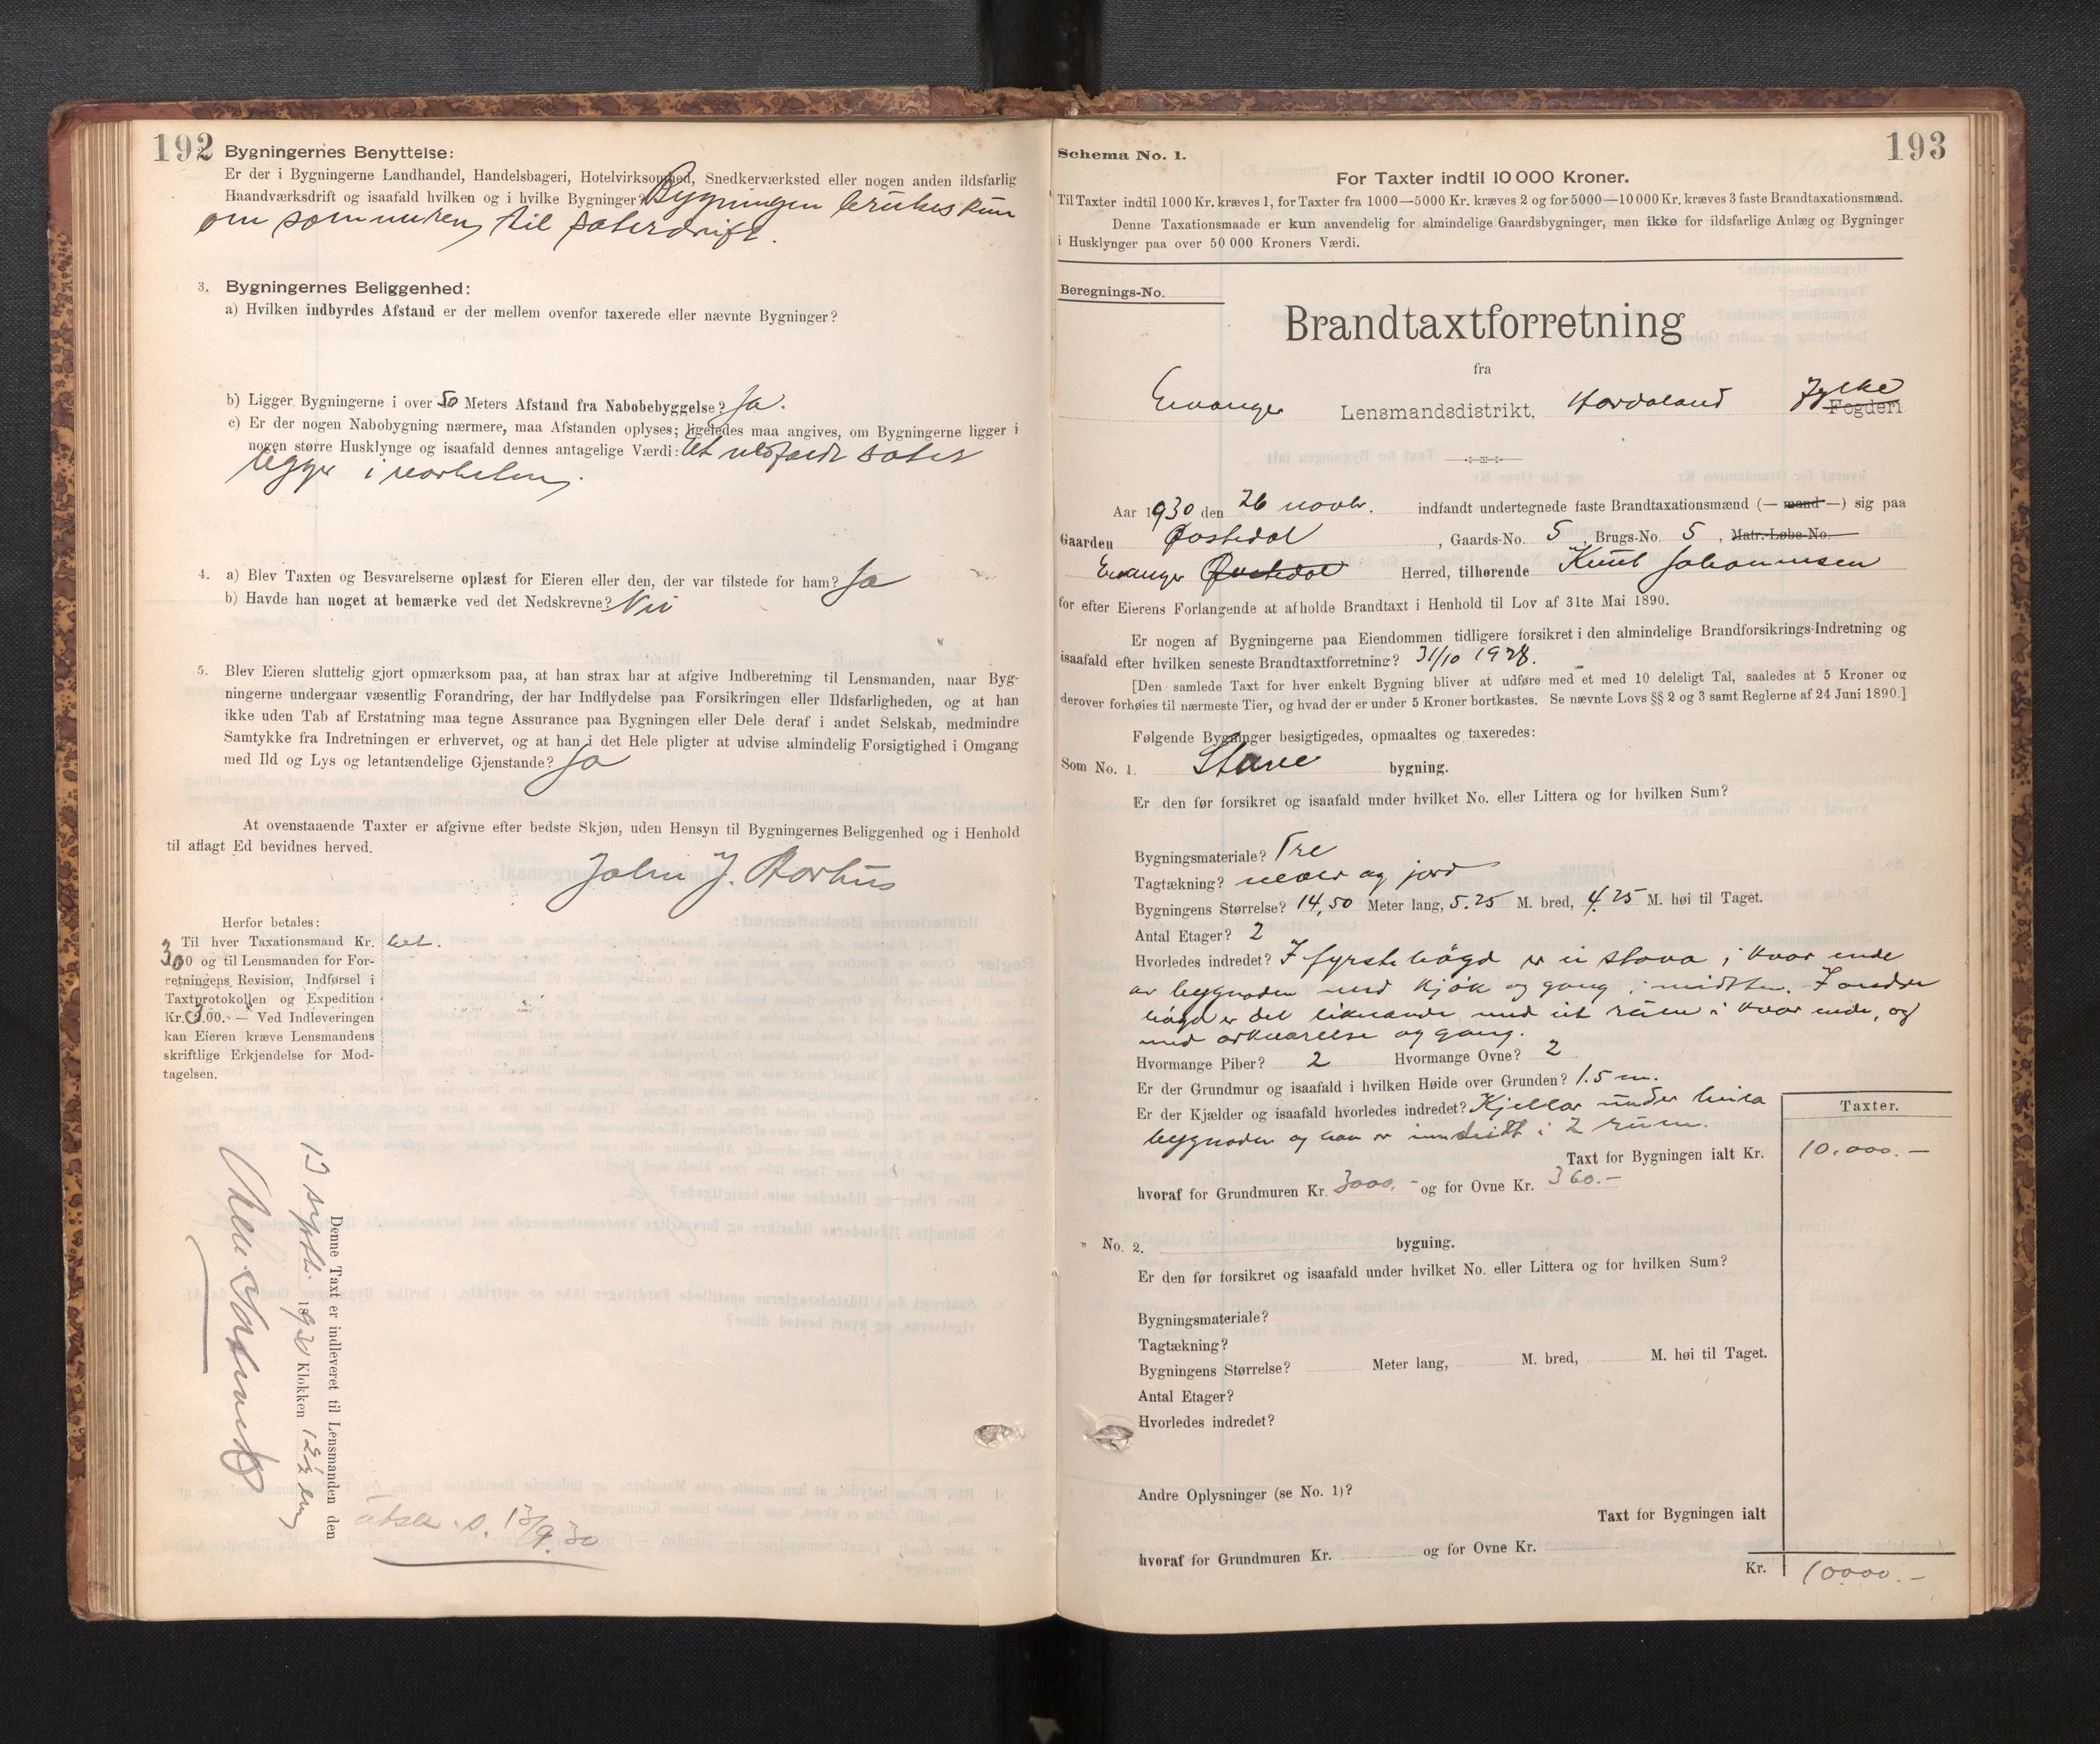 192
Bygningernes Benyttelse:
Er der i Bygningerne Landhandel, Handelsbageri, Hotelvirksomhed, Snedkerværksted eller nogen anden ildsfarlig
Haandværksdrift og isaafald hvilken og i hvilke Bygninger? Bygningen brukes kun
om sommeren til sæterdrift.
3. Bygningernes Beliggenhed:
a) Hvilken indbyrdes Afstand er der mellem ovenfor taxerede eller nævnte Bygninger?
b) Ligger Bygningerne i over 50 Meters Afstand fra Nabobebyggelse? Ja.
c) Er der nogen Nabobygning nærmere, maa Afstanden oplyses; ligeledes maa angives, om Bygningerne ligger i
nogen større Husklynge og isaafald dennes antagelige Værdi:
ligger i
4. a) Blev Taxten og Besvarelserne oplæst for Eieren eller den, der var tilstede for ham? Ja
b) Havde han noget at bemærke ved det Nedskrevne? Nei
5. Blev Eieren sluttelig gjort opmærksom paa, at han strax har at afgive Indberetning til Lensmanden, naar Byg-
ningerne undergaar væsentlig Forandring, der har Indflydelse paa Forsikringen eller Ildsfarligheden, og at han
ikke uden Tab af Erstatning maa tegne Assurance paa Bygningen eller Dele deraf i andet Selskab, medmindre
Samtykke fra Indretningen er erhvervet, og at han i det Hele pligter at udvise almindelig Forsigtighed i Omgang
med Ild og Lys og letantændelige Gjenstande? Ja
At ovenstaaende Taxter er afgivne efter bedste Skjøn, uden Hensyn til Bygningernes Beliggenhed og i Henhold
til aflagt Ed bevidnes herved.
John J. Rorhus
Herfor betales:
Til hver Taxationsmand Kr. bet.
3.00 og til Lensmanden for For-
retningens Revision, Indførsel i
Taxtprotokollen og Expedition
Kr. 3.00. — Ved Indleveringen
kan Eieren kræve Lensmandens
skriftlige Erkjendelse for Mod-
tagelsen.
Denne Taxt er indleveret til Lensmanden den
13 septbr. 1930 Klokken 12½ em
utsk. s. 13/9.30
193
Schema No. 1.
For Taxter indtil 10 000 Kroner.
Til Taxter indtil 1000 Kr. kræves 1, for Taxter fra 1000—5000 Kr. kræves 2 og for 5000—10 000 Kr. kræves 3 faste Brandtaxationsmænd.
Denne Taxationsmaade er kun anvendelig for almindelige Gaardsbygninger, men ikke for ildsfarlige Anlæg og Bygninger
i Husklynger paa over 50 000 Kroners Værdi.
Beregnings-No.
Brandtaxtforretning
fra
Evanger Lensmandsdistrikt, Hordaland Fylke Fogderi
Aar 1930 den 26 novbr. indfandt undertegnede faste Brandtaxationsmænd (— mand —) sig paa
Gaarden Øvstedal, Gaards-No. 5, Brugs-No. 5, Matr.-Løbe-No.
Evanger Øvstedal Herred, tilhørende Knut Johannesen
for efter Eierens Forlangende at afholde Brandtaxt i Henhold til Lov af 31te Mai 1890.
Er nogen af Bygningerne paa Eiendommen tidligere forsikret i den almindelige Brandforsikrings-Indretning og
isaafald efter hvilken seneste Brandtaxtforretning? 31/10 1928.
[Den samlede Taxt for hver enkelt Bygning bliver at udføre med et med 10 deleligt Tal, saaledes at 5 Kroner og
derover forhøies til nærmeste Tier, og hvad der er under 5 Kroner bortkastes. Se nævnte Lovs §§ 2 og 3 samt Reglerne af 24 Juni 1890.]
Følgende Bygninger besigtigedes, opmaaltes og taxeredes:
Som No. 1. Stove bygning.
Er den før forsikret og isaafald under hvilket No. eller Littera og for hvilken Sum?
Bygningsmateriale? Tre
Tagtækning? never og jord
Bygningens Størrelse? 14,50 Meter lang, 5.25 M. bred, 4.25 M. høi til Taget.
Antal Etager? 2
Hvorledes indredet? I fyrste høgd er ei stova i kvar ende
av bygnaden med kjøk og gang i midten. I andre
høgd er det liknande med eit rum i kvar ende, og
med arkværelse og gang.
Hvormange Piber? 2 Hvormange Ovne? 2
Er der Grundmur og isaafald i hvilken Høide over Grunden? 1.5 m.
Er der Kjælder og isaafald hvorledes indredet? Kjellar under heila
bygnaden og han er innreidt i 2 rum.
Taxter.
Taxt for Bygningen ialt Kr. 10.000.—
hvoraf for Grundmuren Kr. 3000.- og for Ovne Kr. 360.-
" No. 2. bygning.
Er den før forsikret og isaafald under hvilket No. eller Littera og for hvilken Sum?
Bygningsmateriale?
Tagtækning?
Bygningens Størrelse? Meter lang, M. bred, M. høi til Taget.
Antal Etager?
Hvorledes indredet?
Andre Oplysninger (se No. 1)?
Taxt for Bygningen ialt
hvoraf for Grundmuren Kr. og for Ovne Kr.
Kr. 10000.-